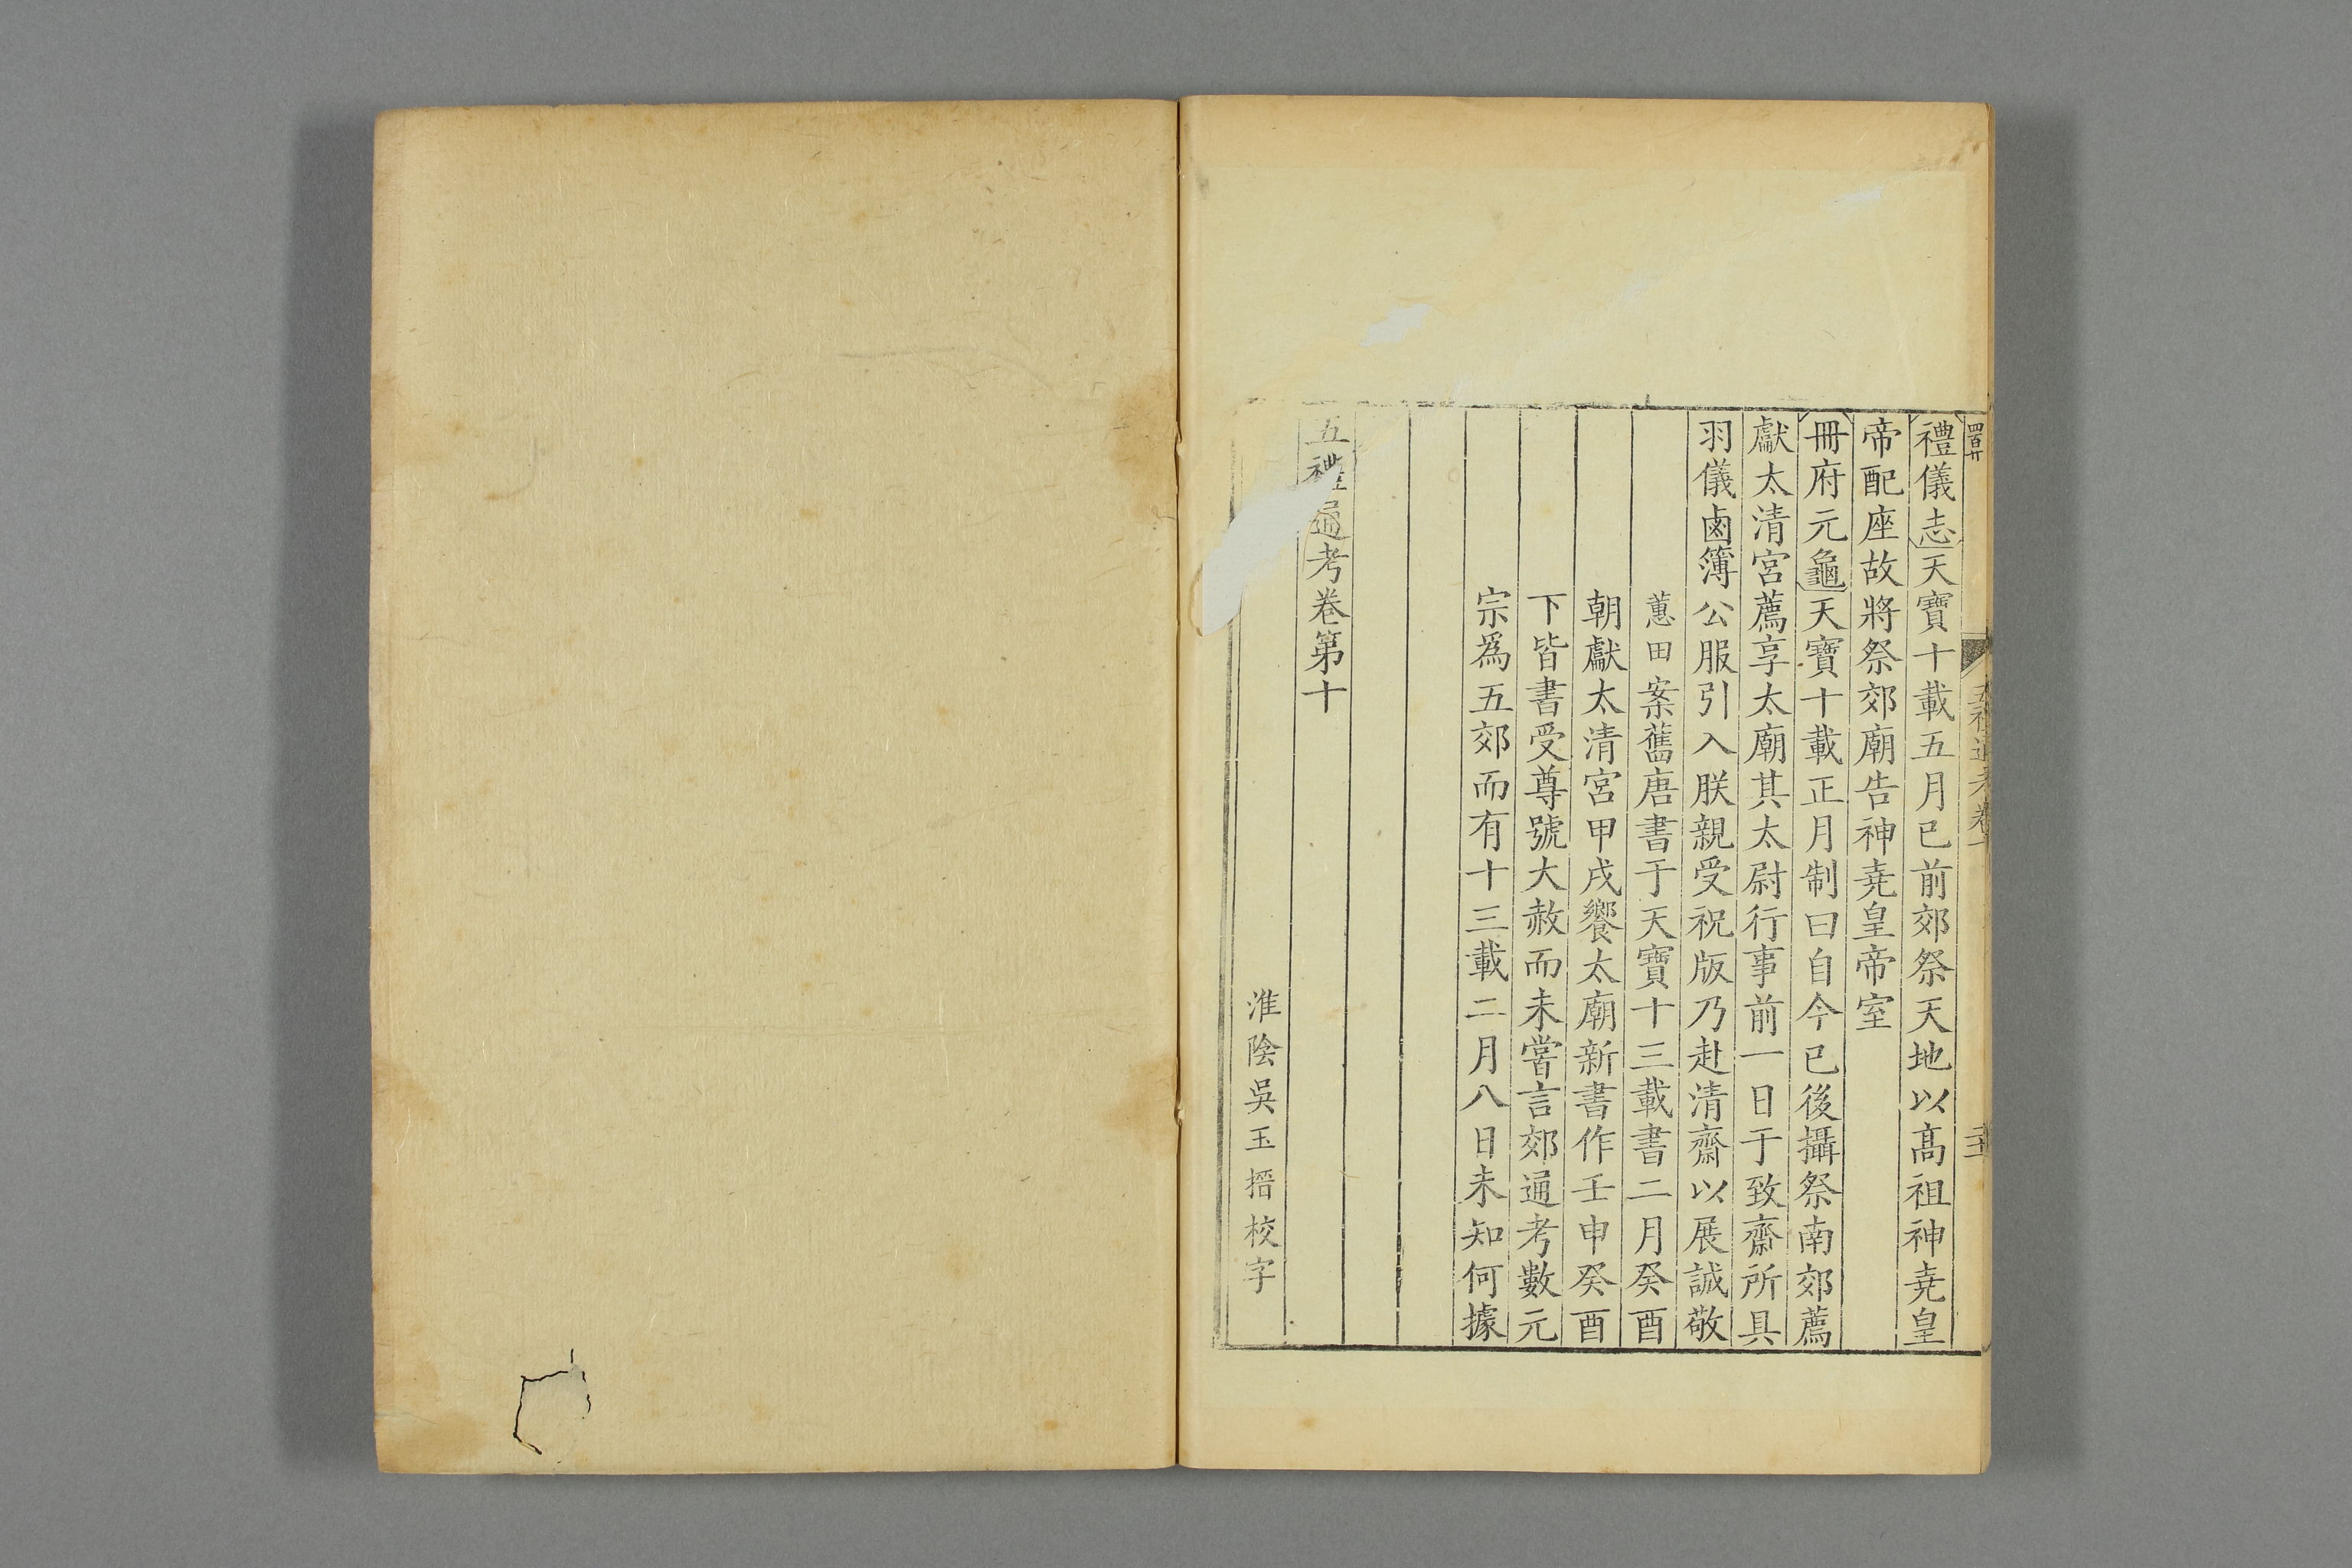 四百廿
禮儀志天寶十載五月已前郊祭天地以髙祖神堯皇
帝配座故將祭郊廟告神堯皇帝室
冊府元龜天寶十載正月制曰自今已後攝祭南郊薦
獻太清宮薦享太廟其太尉行事前一日于致齋所具
羽儀鹵簿公服引入朕親受祝版乃赴清齋以展誠敬
蕙田案舊唐書于天寶十三載書二月癸酉
朝獻太清宮甲戌饗太廟新書作壬申癸酉
下皆書受尊號大赦而未嘗言郊通考數元
宗爲五郊而有十三載二月八日未知何據
五禮通考卷第十
淮陰吳玉搢校字